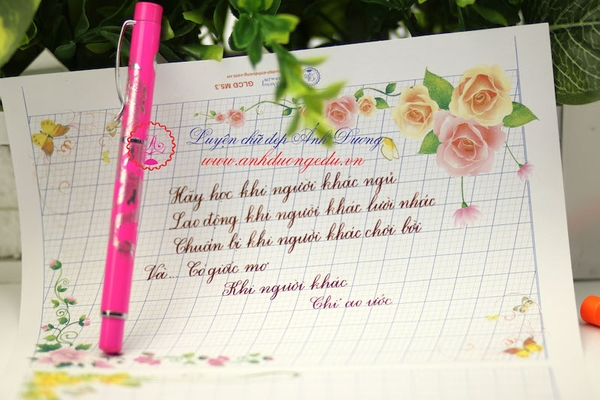 GLCD M5.3
Luyện chữ đẹp Ánh Dương
www.anhduongedu.vn
Hãy học khi người khác ngủ
Lao động khi người khác lười nhác
Chuẩn bị khi người khác chơi bời
Và... Có giấc mơ
Khi người khác
Chỉ ao ước.